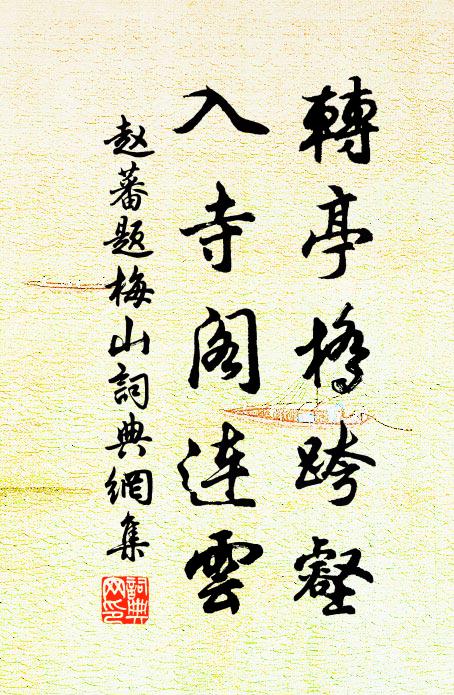 轉亭橋跨壑
入寺閣連雲
赵蕃题梅山詞典網集
詞典网印